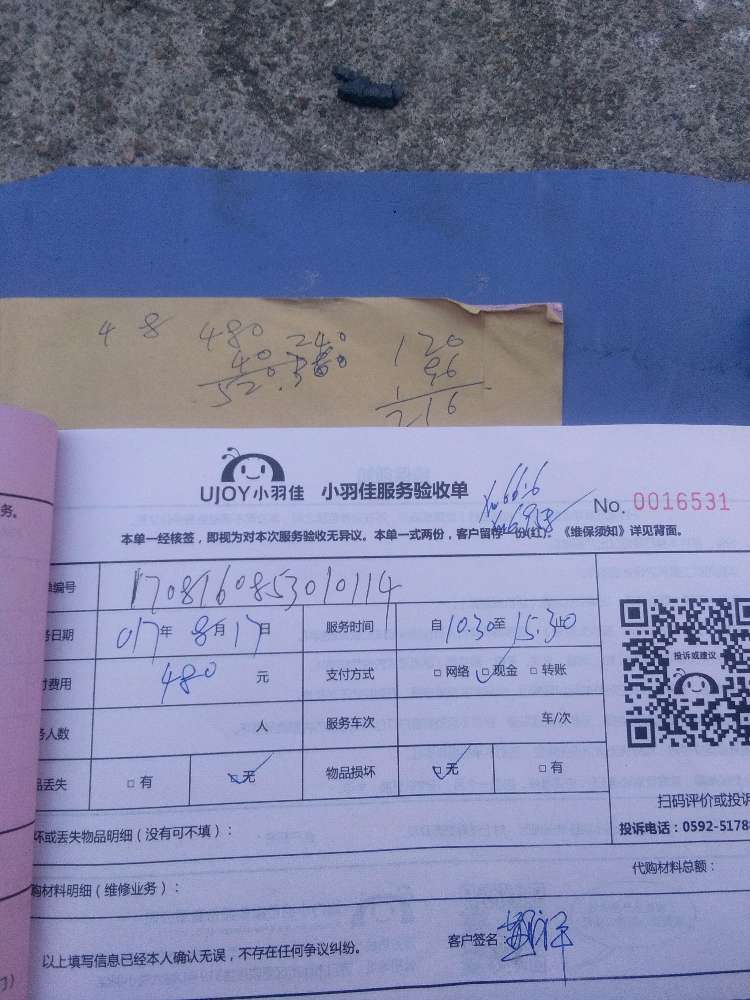 4 8 480 240 120
40 360 96
520. 1
216
务。
UJOY小羽佳 小羽佳服务验收单
No. 0016531
本单一经核签，即视为对本次服务验收无异议。本单一式两份，客户留存一份(红)。《维保须知》详见背面。
单编号 1708160853010114
务日期 017年 8月17日 服务时间 自10.30至15.30止
付费用 480 元 支付方式 □ 网络 □ 现金 □ 转账
务人数 人 服务车次 车/次
品丢失 □ 有 □ 无 物品损坏 □ 无 □ 有
投诉或建议
扫码评价或投诉
投诉电话：0592-5178
坏或丢失物品明细（没有可不填）：
代购材料总额：
购材料明细（维修业务）：
以上填写信息已经本人确认无误，不存在任何争议纠纷。
客户签名